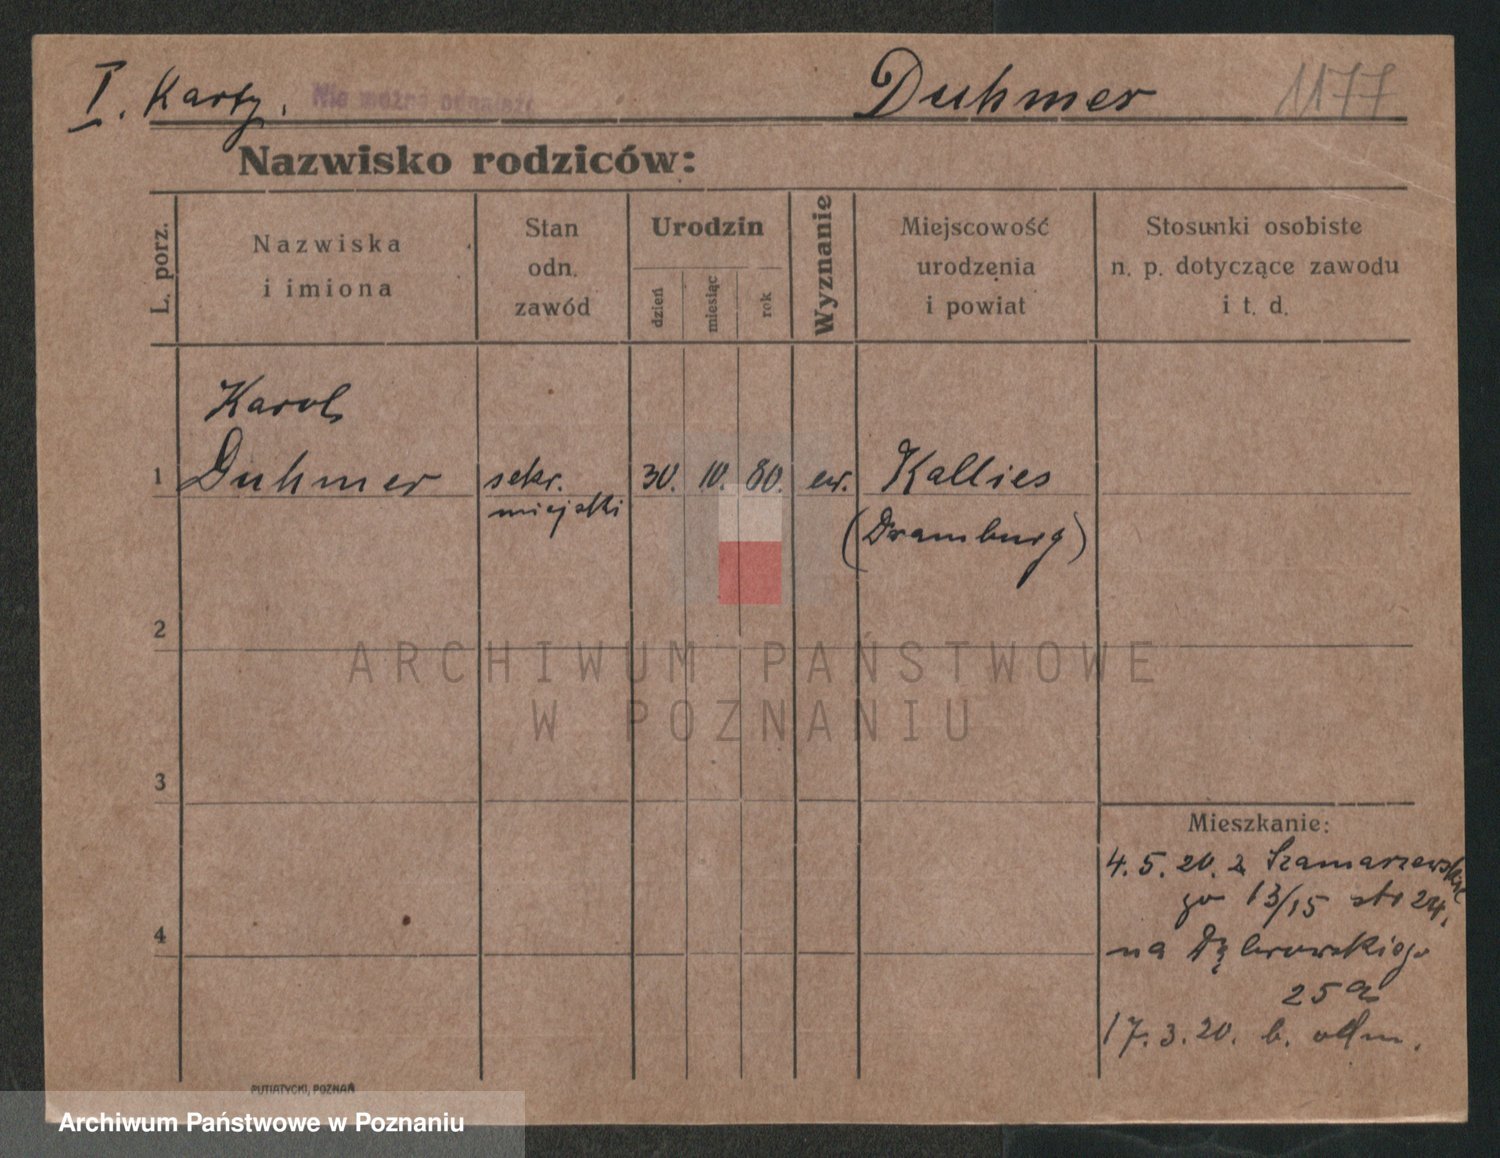 I. Karty. Duhmer 1177
Nie można odnaleźć
Nazwisko rodziców:
L. porz.
Nazwiska
i imiona
Stan
odn.
zawód
Urodzin
dzień
miesiąc
rok
Wyznanie
Miejscowość
urodzenia
i powiat
Stosunki osobiste
n. p. dotyczące zawodu
i t. d.
Karol
1 Duhmer sekr. 30. 10. 80. ew. Kallies
miejski (Dramburg)
2
3
4
ARCHIWUM PAŃSTWOWE
W POZNANIU
Mieszkanie:
4.5.20. z Szamarzewskie
go 13/15 str 24.
na Dąbrowskiego
25a
17.3.20. b.
PUTIATYCKI, POZNAŃ
Archiwum Państwowe w Poznaniu